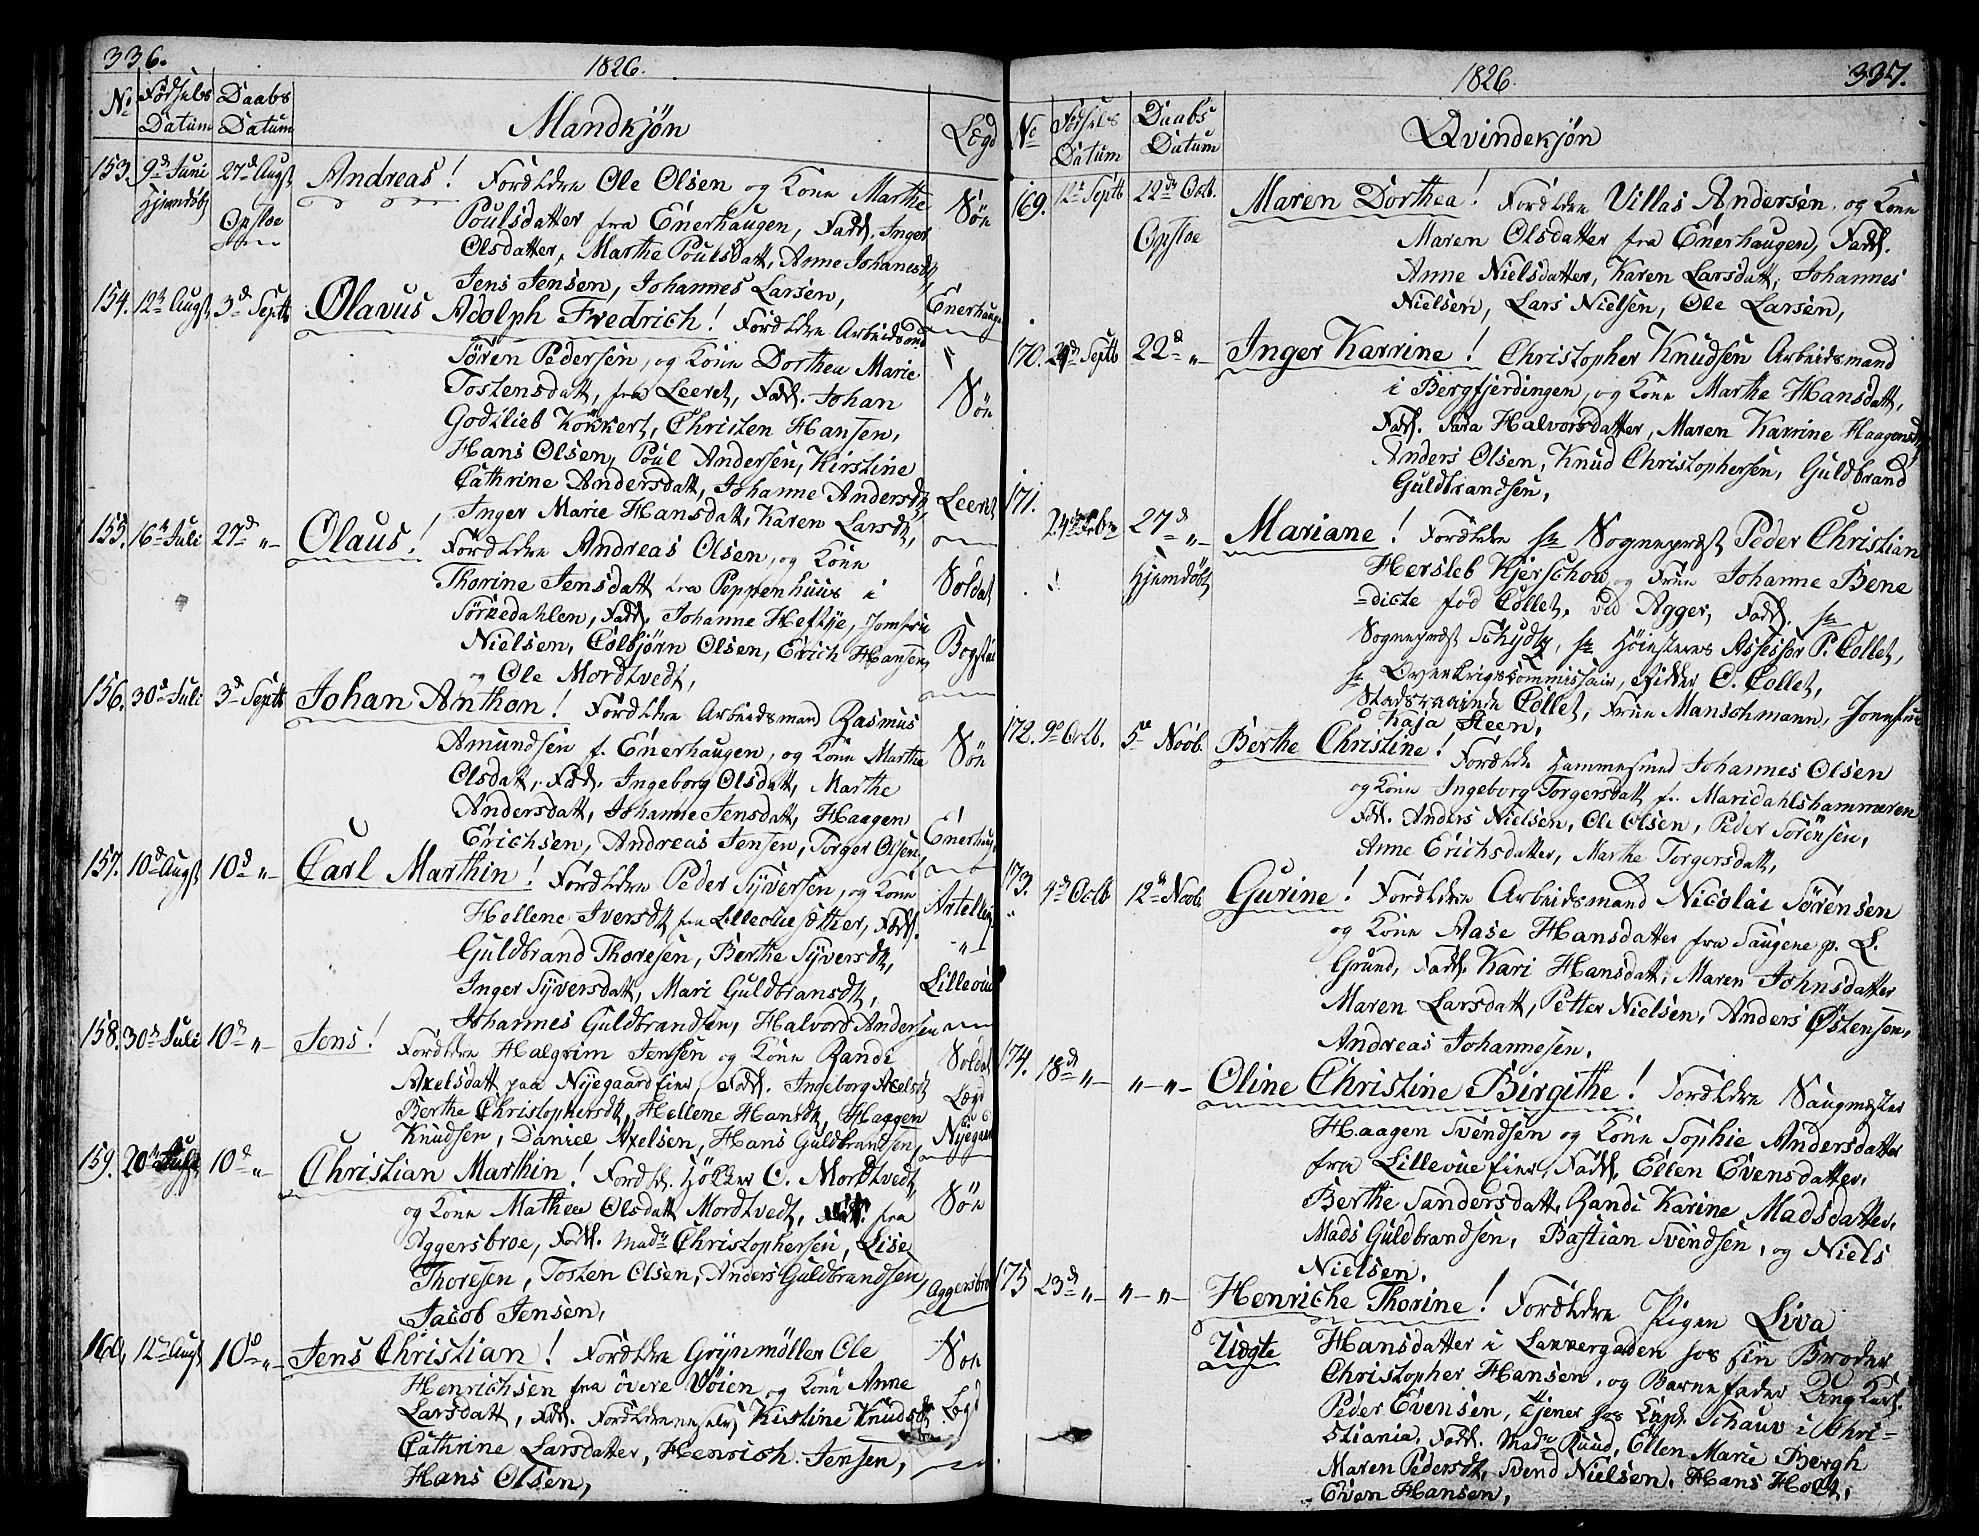 336.
1826.
No Fødsels Datum Daabs Datum Mandkjøn Lægd
153. 9d Juni 27d Augst Andreas! Forældre Ole Olsen og Kone Marthe
Hjemdøbt Opsloe Poulsdatter fra Enerhaugen, Fadd. Inger Søn
Olsdatter, Marthe Poulsdatt, Anne Johanesdt,
Jens Jensen, Johannes Larsen,
154. 12te Augst 3d Septb Olavus Adolph Fredrich! Forældre Arbeidsmd Enerhaug
Søren Pedersen, og Kone Dorthea Marie
Tostensdatt, fra Leeret, Fadd. Johan Søn
Godtlieb Kökkert, Christen Hansen,
Hans Olsen, Poul Andersen, Kirstine
Cathrine Andersdatt, Johanne Andersdt,
Inger Marie Hansdatt, Karen Larsdt, Leeret
155. 16te Juli 27d "- Olaus! Forældre Andreas Olsen, og Kone
Thorine Jensdatt fra Peppenhuus i Soldat
Sørkedahlen, Fadd. Johanne Heftye, Jomfru
Nielsen, Colbjørn Olsen, Erich Hansen, Bogstad
og Ole Mordtvedt,
156. 30d Juli 3d Septb Johan Anthon! Forældre Arbeidsmand Rasmus
Amundsen f. Enerhaugen, og Kone Marthe Søn
Olsdatt, Fadd. Ingeborg Olsdatt, Marthe
Andersdatt, Johanne Jensdatt, Haagen
Erichsen, Andreas Jensen, Torger Olsen, Enerhaug
157. 10d Augst 10d "- Carl Marthin! Forældre Peder Syversen, og Kone
Hellene Iversdt fra Lillevue sötter, Fadd. Artelleri
Guldbrand Thoresen, Berthe Syversdt,
Inger Syversdatt, Mari Guldbransdt, Lillevue
Johannes Guldbrandsen, Halvord Andersen
158. 30te Juli 10d "- Jens! Forældre Halgrim Jensen og Kone Randi Soldat
Axelsdatt paa Nyegaardfier, Fadd. Ingeborg Axelsdt Lægd
Berthe Christophersdt, Hellene Hansdt, Haagen
Knudsen, Daniel Axelsen, Hans Guldbrandsen, Nyegaard
159. 20te 10d "- Christian Marthin! Foræld. Hölker O. Mordtvedt,
og Kone Mathea Olsdatt Mordtvedt, fra Søn
Aggersbroe, Fadd. Madm Christophersen, Lise
Thoresen, Tosten Olsen, Anders Guldbrandsen, Aggersbro
Jacob Jensen,
160. 12te Augst 10d "- Jens Christian! Forældre Grÿnmöller Ole Søn
Henrichsen fra övere Vöien og Kone Anne
Larsdatt, Fadd. Forældrene selv, Kirstine Knudsdt Lægd
Cathrine Larsdatter, Henrich Jensen,
Hans Olsen,
1826.
337.
No Fødsels Datum Daabs Datum Qvindekjön
169. 12te Septb 22de Octb. Maren Dorthea! Forældre Villas Andersen, og Kone
Opsloe Maren Olsdatter fra Enerhaugen, Fadd.
Anne Nielsdatter, Karen Larsdatt, Johannes
Nielsen, Lars Nielsen, Ole Larsen,
170. Septb 22d "- Inger Karrine! Christopher Knudsen Arbeidsmand
i Bergfjerdingen, og Kone Marthe Hansdatt,
Fadd. Sara Halvorsdatter, Maren Karrine Haagensdt,
Anders Olsen, Knud Christophersen, Guldbrand
Guldbrandsen,
171. 24de 27d "- Mariane! Forældre Hr Sognepræst Peder Christian
Hjemdøbt Hersleb Kjerschow, og Frue Johanne Bene
-dicte fød Collet, ved Agger, Fadd. Hr
Sognepræst Schydtz, Hr Höiesterets Assessor P. Collet,
Hr Overkrigscommissair, Ridder O. Collet,
Collet, Frue Manschmann, Jomfrue
Kaja Steen,
172. 9d Octb. 5te Novb. Berthe Christine! Forældre Hammersmed Johannes Olsen
og Kone Ingeborg Torgersdatt f. Maridahlshammeren
Fdd. Anders Nielsen, Ole Olsen, Peder Sörensen,
Anne Erichsdatter, Marthe Torgersdatt,
173. 4de Octb 12te Novb. Gurine! Forældre Arbeidsmand Nicolai Sörensen
og Kone Aase Hansdatter fra Saugene p. L.
Grund, Fadd. Kari Hansdatt, Maren Johnsdatter
Maren Larsdatt, Petter Nielsen, Anders Østensen,
Andreas Johannesen.
174. 18d "- "-"- Oline Christine Birgithe! Forældre Saugmester
Haagen Svendsen og Kone Sophie Andersdatter
fra Lillevuefier, Fadd. Ellen Evensdatter,
Berthe Sandersdatt, Randi Karine Madsdatter,
Mads Guldbrandsen, Bastian Svendsen, og Niels
Nielsen.
175 23d "- "-"- Henriche Thorine! Forældre Pigen Siva
Uægte Hansdatter i Lakkergaden hos sin Broder
Christopher Hansen, og Barnefader Ung Karl.
Peder Evensen, tjener hos Capt. Schauv i Chri-
stiania, Fadd. Madm Ruud, Ellen Marie Bergh
Maren Pedersdt, Svend Nielsen, Hans Holt,
Even Hansen,